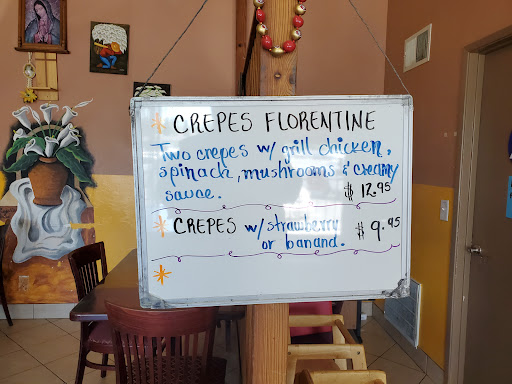 CREPES FLORENTINE
Two crepes w/ grill chicken,
spinach, mushrooms & creamy
sauce. $12.95
CREPES w/strawberry $9.95
or banand.